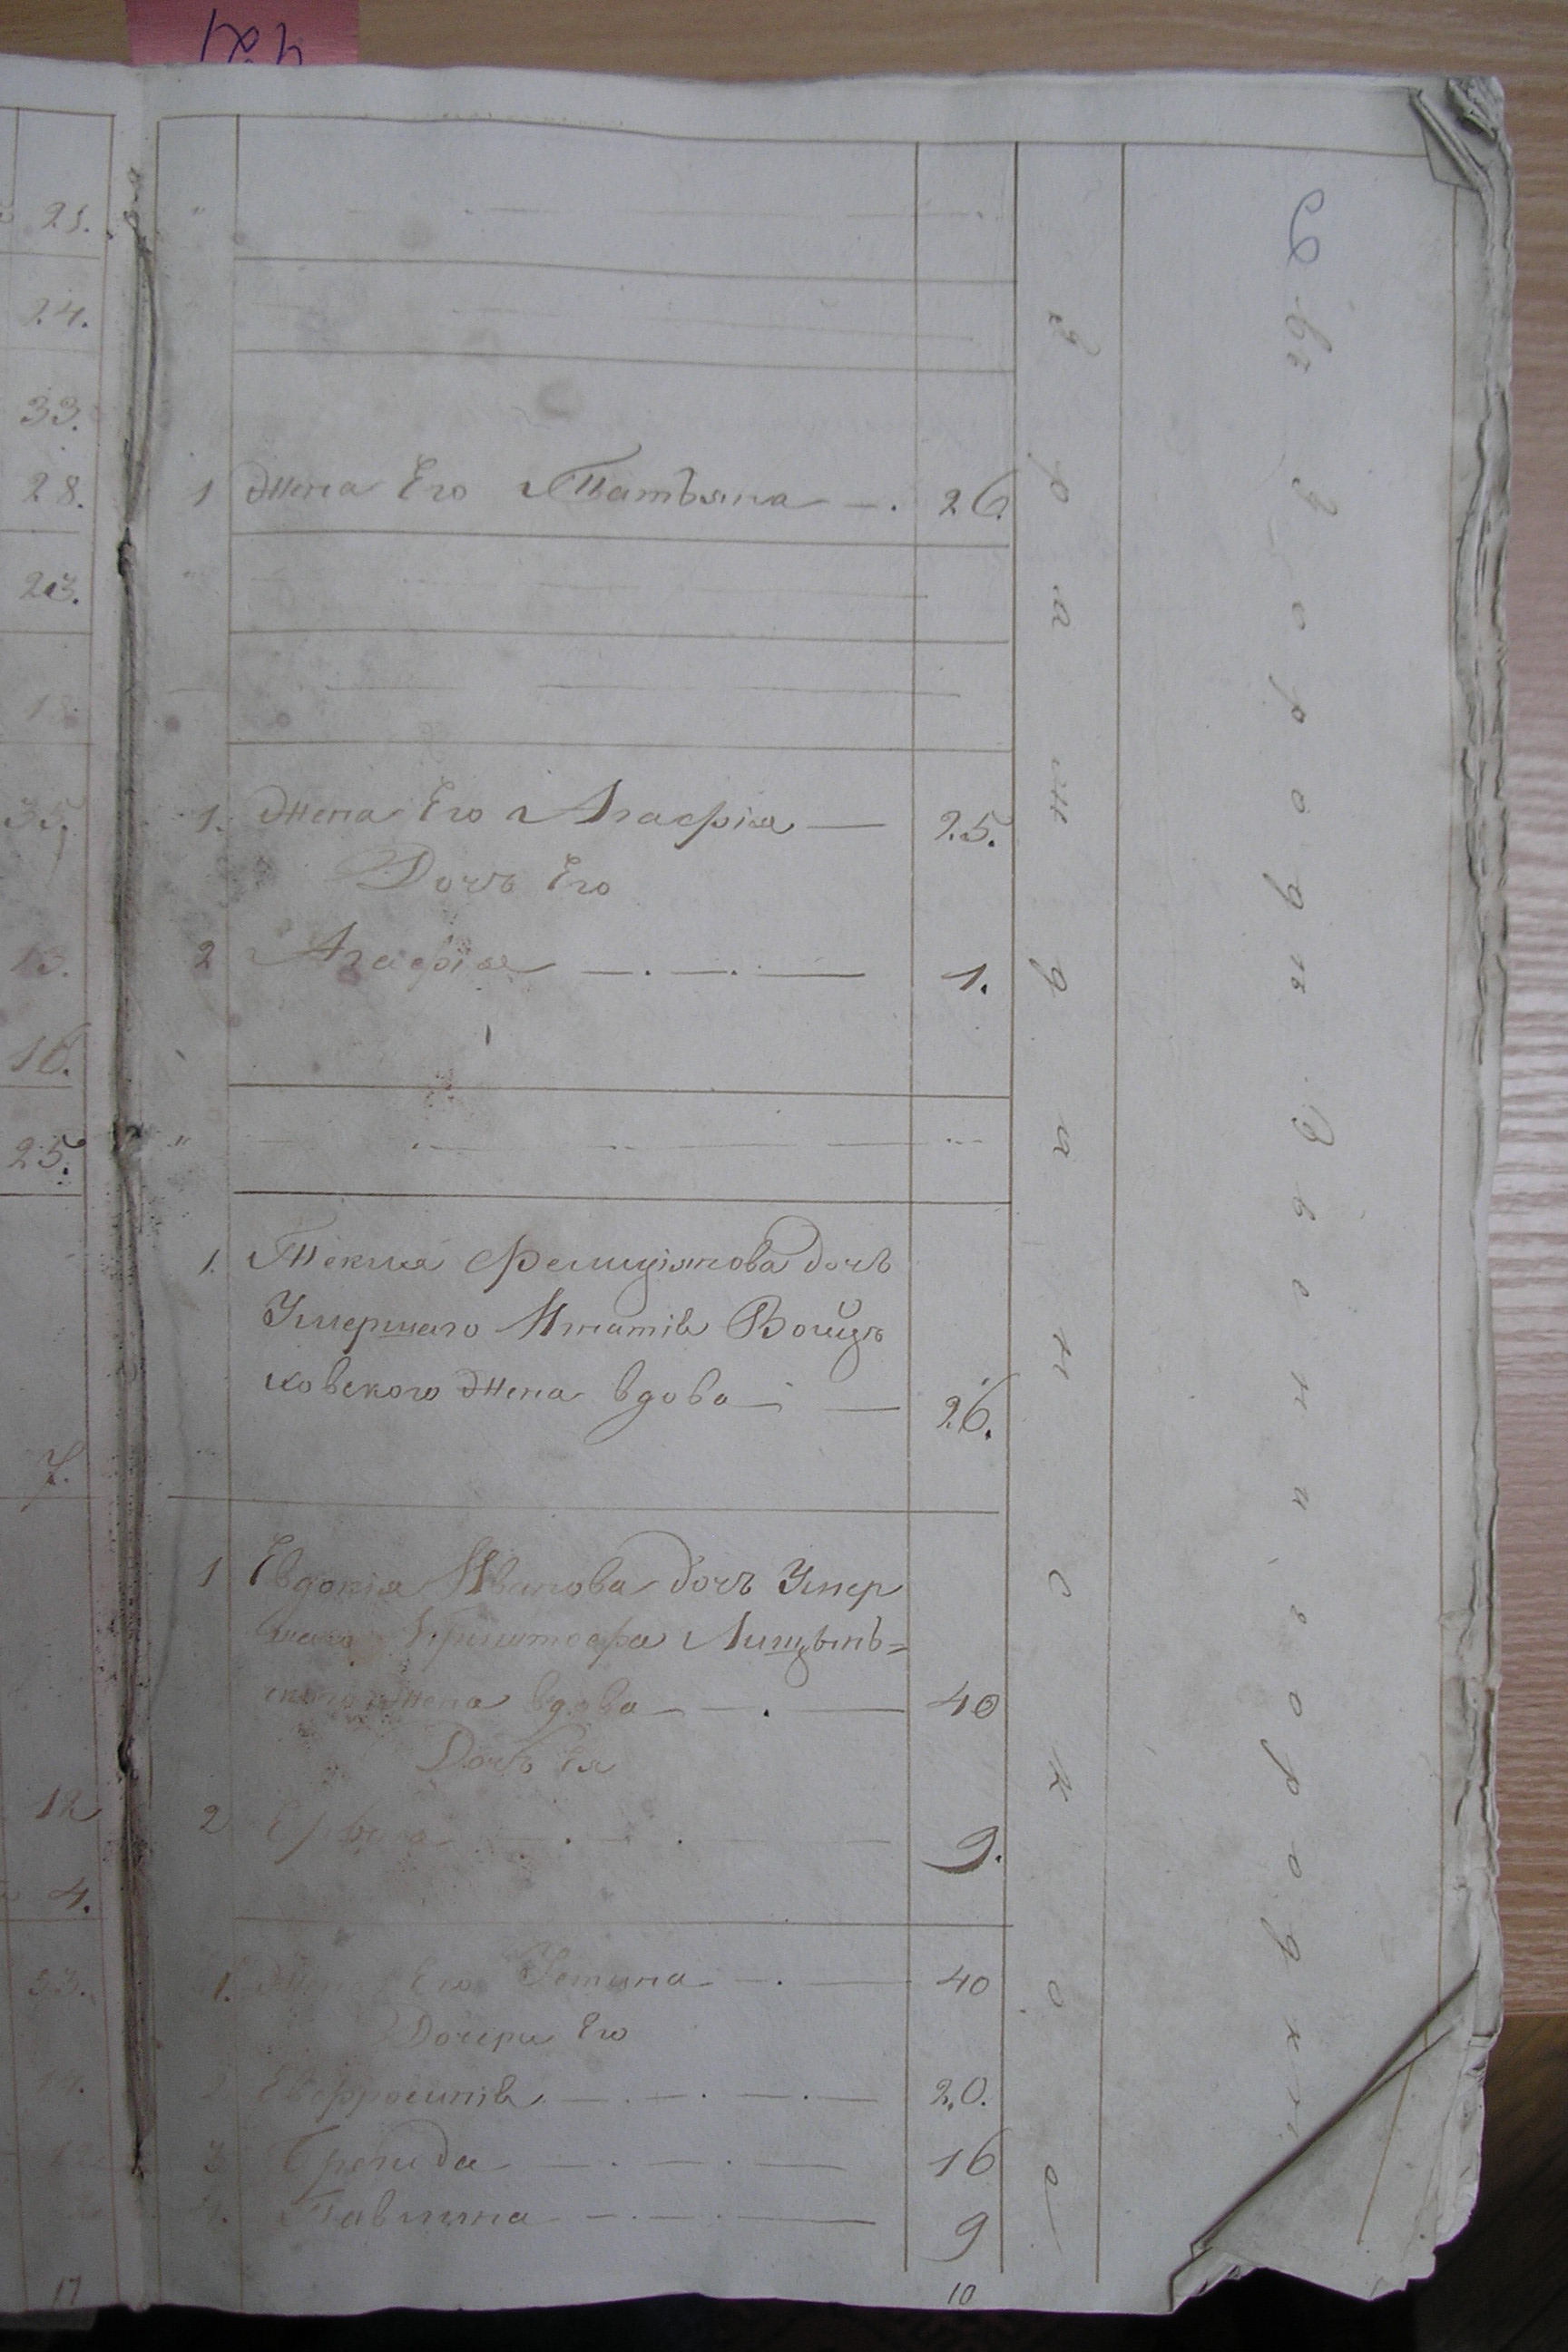 421
21.
24.
33.
28.
23.
18.
35.
13.
16.
25.
7.
12
4.
53.
17
1 жена Его Татьяна — 26.
1. жена Его Агафія — 25.
Дочь Его
2 Агафія — 1.
1. Текля Фелиціянова дочь
Умершаго Игнатія Войцъ
ховского жена вдова — 26.
1 Евдокія Иванова дочь Умер
шаго Криштофа Лищинь=
ского жена вдова — 40
Дочь Ея
2 — 9.
1. жена Его Устина — 40
Дочери Его
2 Евфросинія — 20.
3 — 16
4. Павлина — 9
10
гражданско
въ городѣ Звенигородкѣ